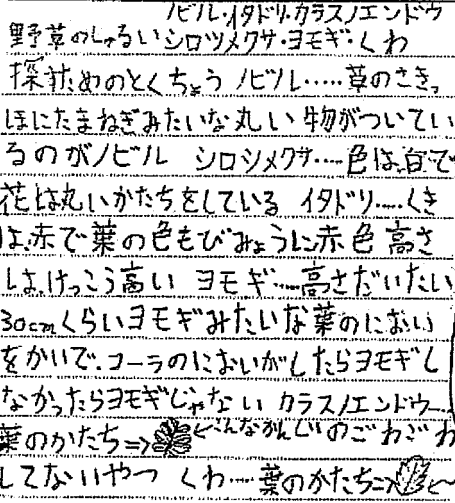 ノビル・イタドリ・カラスノエンドウ
野草のしゅるいシロツメクサ・ヨモギ・くわ
探すためのとくちょう ノビル……草のさきっ
ほにたまねぎみたいな丸い物がついてい
るのがノビル シロシメクサ……色は、白で
花は丸いかたちをしている イタドリ……くき
は、赤で葉の色もびみょうに赤色 高さ
は、けっこう高い ヨモギ……高さだいたい
30cmくらいヨモギみたいな葉のにおい
をかいで、コーラのにおいがしたらヨモギし
なかったらヨモギじゃない カラスノエンドウ……
葉のかたち⇒ ←こんなかんじのごわごわ
してないやつ くわ……葉のかたち⇒ ←